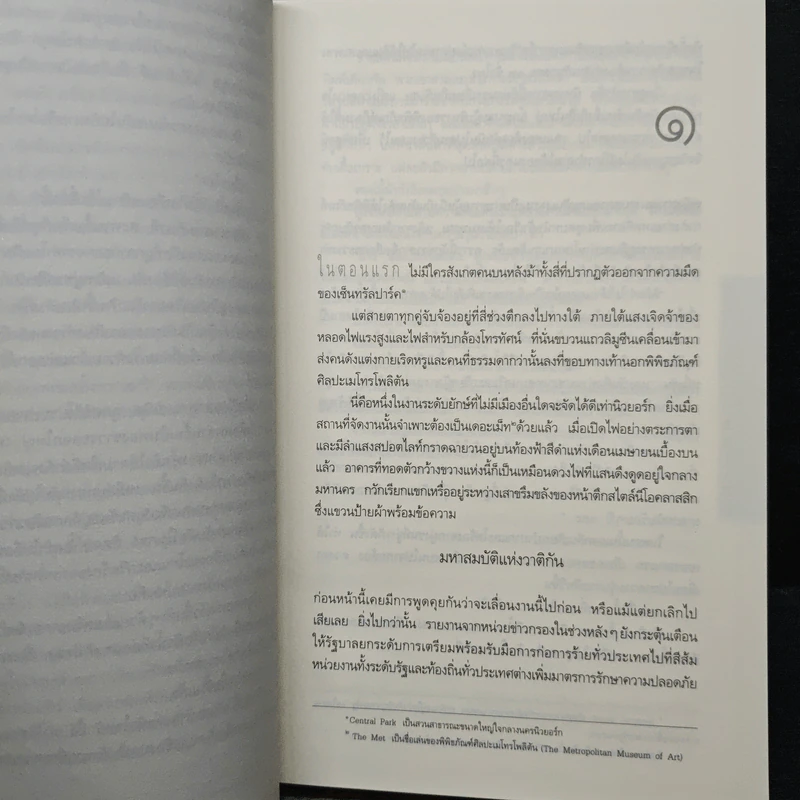 ๑
ในตอนแรก ไม่มีใครสังเกตคนบนหลังม้าทั้งสี่ที่ปรากฏตัวออกจากความมืด
ของเซ็นทรัลปาร์ค*
แต่สายตาทุกคู่จับจ้องอยู่ที่สี่ช่วงตึกลงไปทางใต้ ภายใต้แสงเจิดจ้าของ
หลอดไฟแรงสูงและไฟสำหรับกล้องโทรทัศน์ ที่นั่นขบวนแถวลิมูซีนเคลื่อนเข้ามา
ส่งคนดังแต่งกายเริดหรูและคนที่ธรรมดากว่านั้นลงที่ขอบทางเท้านอกพิพิธภัณฑ์
ศิลปะเมโทรโพลิตัน
นี่คือหนึ่งในงานระดับยักษ์ที่ไม่มีเมืองอื่นใดจะจัดได้ดีเท่านิวยอร์ก ยิ่งเมื่อ
สถานที่จัดงานนั้นจำเพาะต้องเป็นเดอะเม็ท**ด้วยแล้ว เมื่อเปิดไฟอย่างตระการตา
และมีลำแสงสปอตไลท์กราดฉายวนอยู่บนท้องฟ้าสีดำแห่งเดือนเมษายนเบื้องบน
แล้ว อาคารที่ทอดตัวกว้างขวางแห่งนี้ก็เป็นเหมือนดวงไฟที่แสนดึงดูดอยู่ใจกลาง
มหานคร กวักเรียกแขกเหรื่ออยู่ระหว่างเสาขรึมขลังของหน้าตึกสไตล์นีโอคลาสสิก
ซึ่งแขวนป้ายผ้าพร้อมข้อความ
มหาสมบัติแห่งวาติกัน
ก่อนหน้านี้เคยมีการพูดคุยกันว่าจะเลื่อนงานนี้ไปก่อน หรือแม้แต่ยกเลิกไป
เสียเลย ยิ่งไปกว่านั้น รายงานจากหน่วยข่าวกรองในช่วงหลังๆ ยังกระตุ้นเตือน
ให้รัฐบาลยกระดับการเตรียมพร้อมรับมือการก่อการร้ายทั่วประเทศไปที่สีส้ม
หน่วยงานทั้งระดับรัฐและท้องถิ่นทั่วประเทศต่างเพิ่มมาตรการรักษาความปลอดภัย
* Central Park เป็นสวนสาธารณะขนาดใหญ่ใจกลางนครนิวยอร์ก
** The Met เป็นชื่อเล่นของพิพิธภัณฑ์ศิลปะเมโทรโพลิตัน (The Metropolitan Museum of Art)